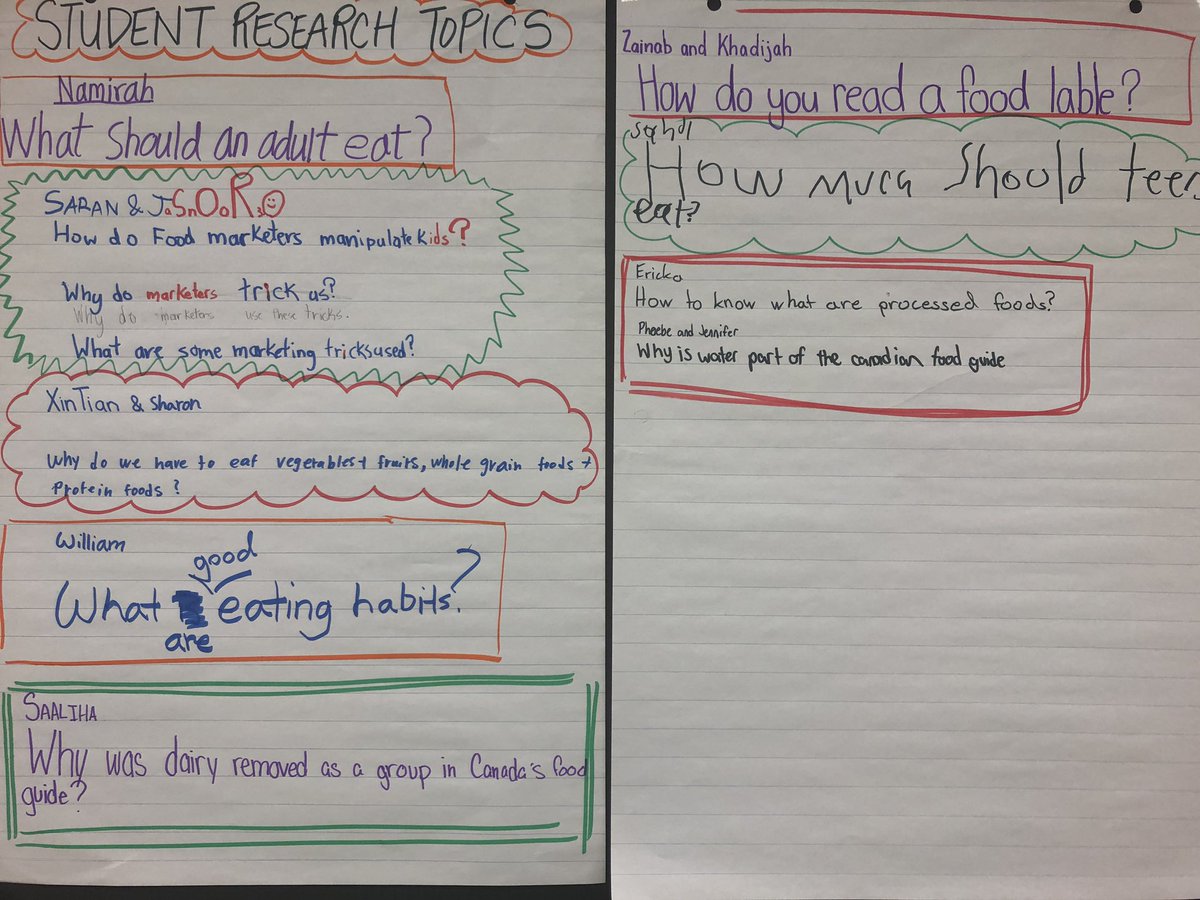 STUDENT RESEARCH TOPICS
Namirah
What should an adult eat?
SARAN &
How do Food marketers manipulate kids?
Why do marketers trick us?
Why do marketers use these tricks.
What are some marketing tricks used?
XinTian & Sharon
Why do we have to eat vegetables + fruits, whole grain foods +
Protein foods?
William
good
What eating habits?
are
SAALIHA
Why was dairy removed as a group in Canada's food
guide?
Zainab and Khadijah
How do you read a food lable?
How much Should teens
eat?
Ericka
How to know what are processed foods?
Phoebe and Jennifer
Why is water part of the canadian food guide